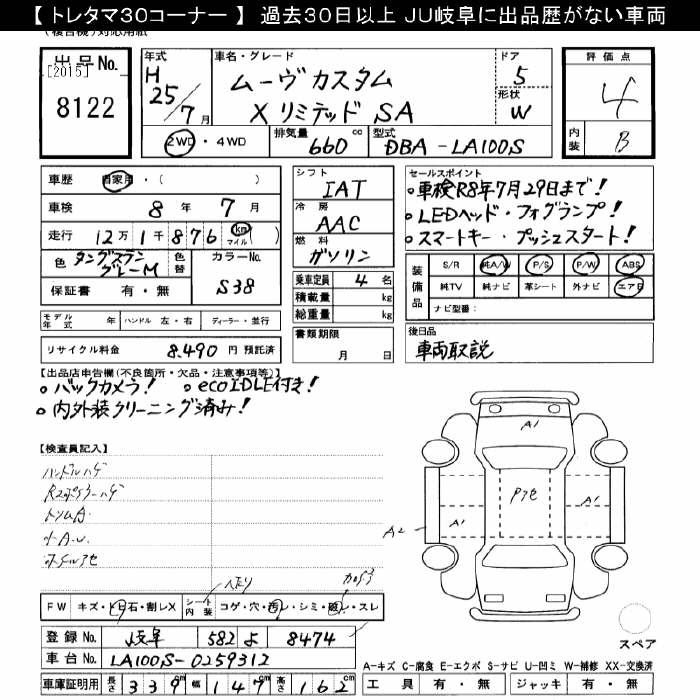 【 トレタマ30コーナー 】 過去30日以上 JU岐阜に出品歴がない車両
(複合機)対応用紙
出品No. [2015] 8122
年式 H 25/7月
車名・グレード ムーヴカスタム
X リミテッド SA
ドア 5
形状 W
評価点 4
内装 B
2WD・4WD 排気量 660 cc 型式 DBA-LA100S
車歴 自家用・( )
車検 8年 7月
走行 12万1千876 km マイル ( )
色 タングステングレーM 色替 カラーNo. S38
保証書 有・無
モデル年式 年 ハンドル 左・右 ディーラー・並行
リサイクル料金 8,490 円 預託済
シフト IAT
冷房 AAC
燃料 ガソリン
乗車定員 4 名
積載量 kg
総重量 kg
書類期限 月 日
セールスポイント
○車検R8年7月29日まで!
○LEDヘッド・フォグランプ!
○スマートキー・プッシュスタート!
装備品 S/R 純A/W P/S P/W ABS
純TV 純ナビ 革シート 外ナビ エアB
ナビ型番:
後日品
車両取説
【出品店申告欄(不良箇所・欠品・注意事項等)】
○バックカメラ! ○ecoIDLE付き!
○内外装クリーニング済み!
【検査員記入】
ハンドルハゲ
A1
Pアセ
A1
A1
A2
FW キズ・トビ石・割レX シート内装 コゲ・穴・汚レ・シミ・破レ・スレ
ヘタリ
登録No. 岐阜 582 よ 8474
車台No. LA100S-0259312
車庫証明用 長さ 339cm 幅 147cm 高さ 162cm
スペア
A-キズ C-腐食 E-エクボ S-サビ U-凹ミ W-補修 XX-交換済
工具 有・無 ジャッキ 有・無